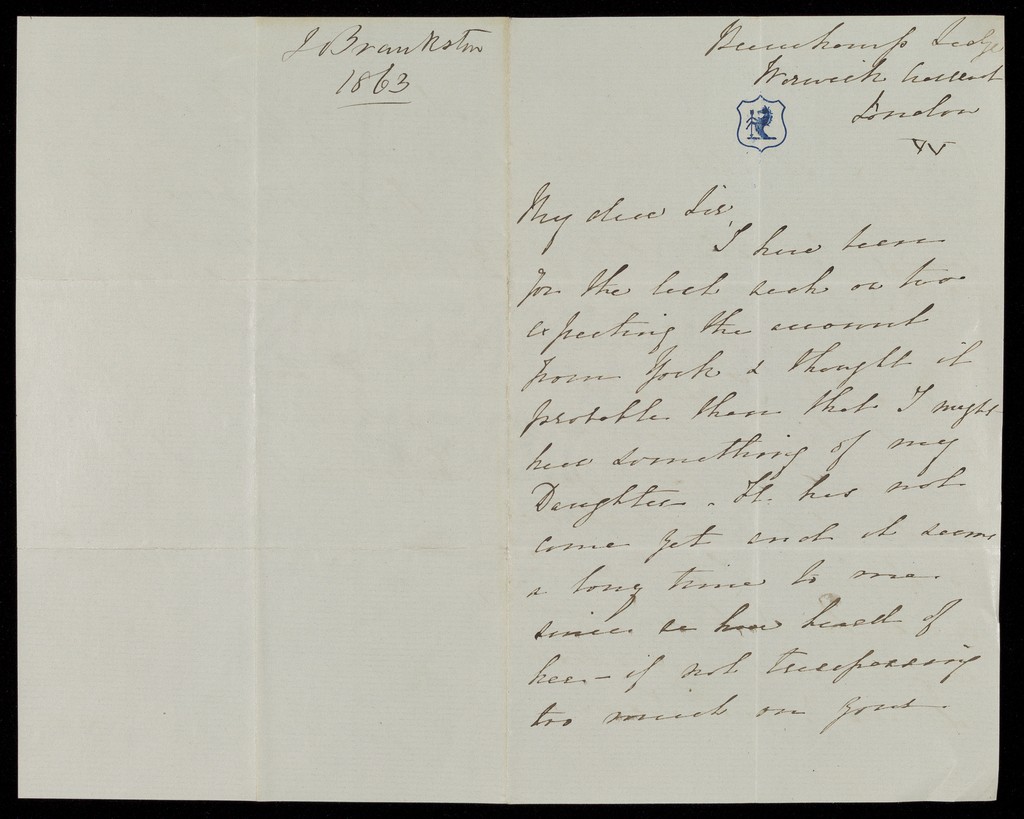 J Brankston
1863
Beauchamp Lodge
Warwick Crescent
London
W
My dear Sir,
I have been
for the last week or two
expecting the account
from York & thought it
probable then that I might
hear something of my
Daughter. It has not
come yet and it seems
a long time to me
since we have heard of
her – if not trespassing
too much on your